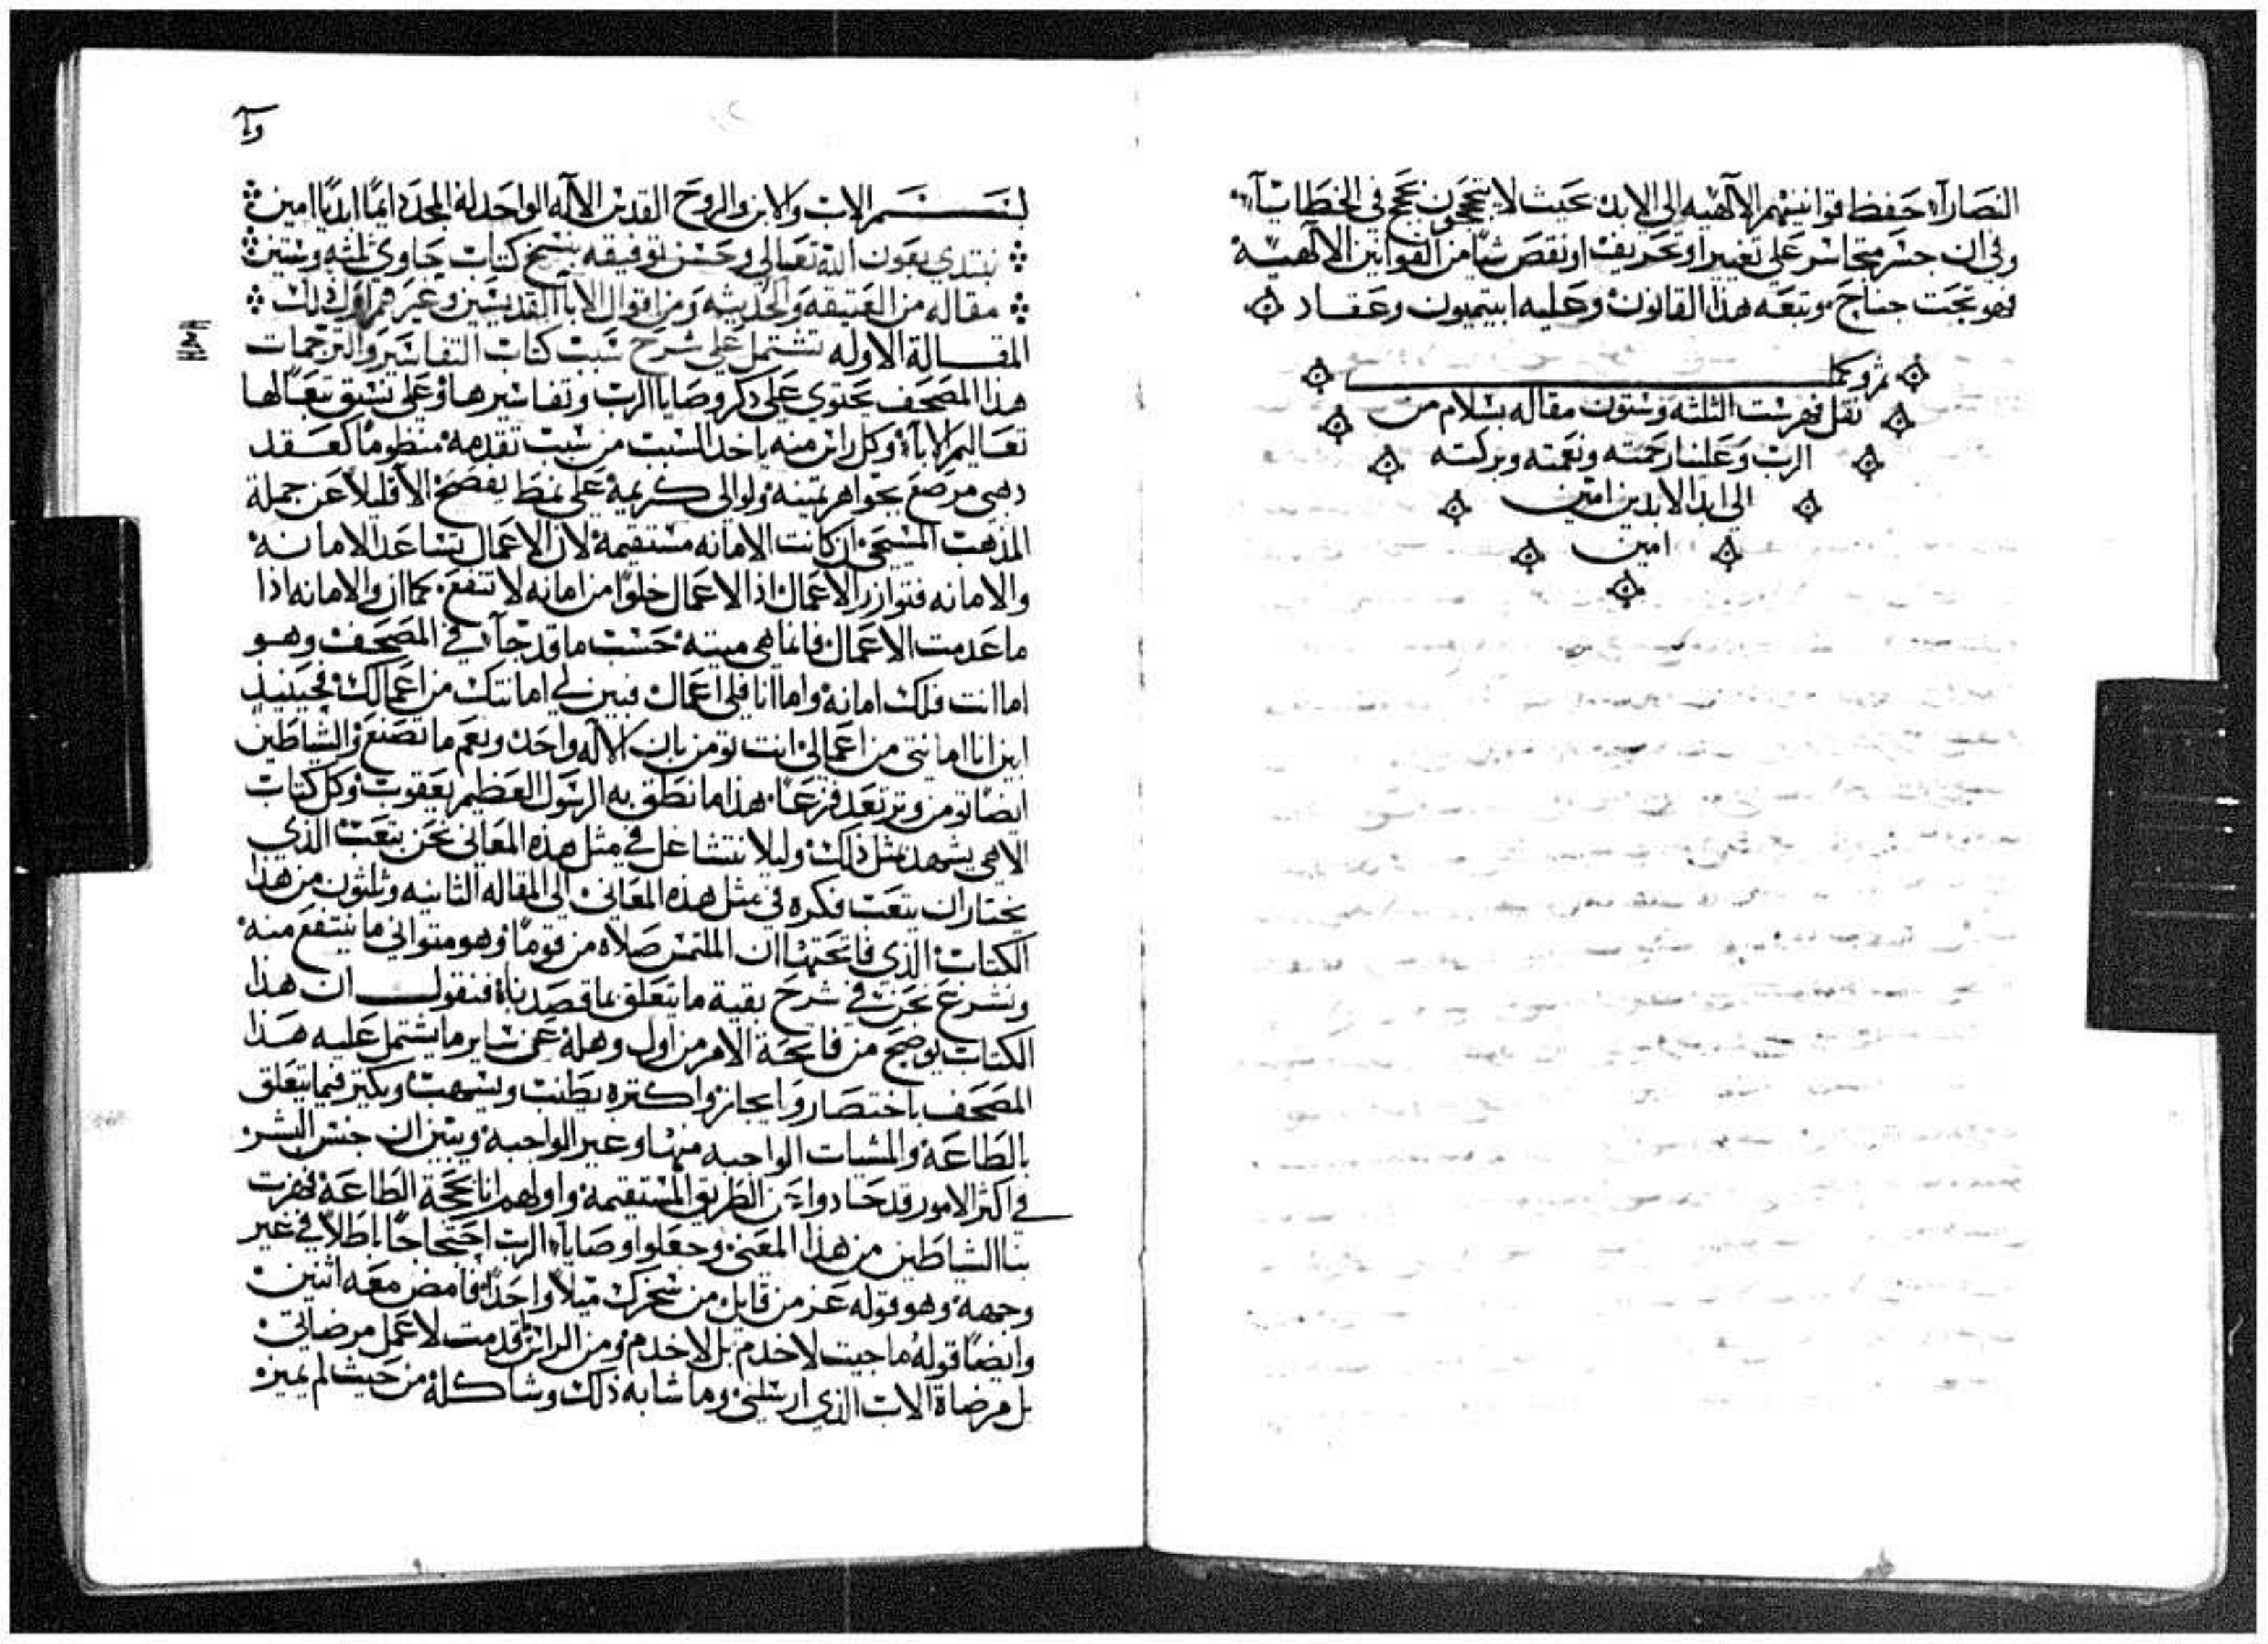 النصارا، حفظ قوانينهم الالهيه الى الابد، بحيث لا يحتجون بحجج في الخطاب،
وفي ان جسر متجاسر على تغييرا وتحريف او نقص شيا من القوانين الالهيه
فهو تحت جناح وتبعه هذا القانون وعليه
ثم وكمل
نقل فهرست الثلثه وستون مقاله بسلام من
الرب وعلينا رحمته ونعمته وبركته
الى ابد الابدين امين
امين
بسم الاب والابن والروح القدس الاله الواحد له المجد دايمًا ابديًا امين
نبتدي بعون الله تعالى وحسن توفيقه بنسخ كتاب حاوي ثلثه وستين
مقاله من العتيقه والحديثه ومن اقوال الابا القديسين وغيرهم اول ذلك
المقالة الاوله تشتمل على شرح سبب كتاب التفاسير والترجمات
هذا المصحف يحتوي على ذكر وصايا الرب وتفاسيرها وعلى تنسيق تتبعا لها
تعاليم الابا، وكل راس منه ياخد السبب من سبب تقدمه منظومًا كعقد
دهبي مرصع بجواهر ثمينه ولوالي كريمة على نمط يفصح الا قليلاً عن جملة
المذهب المسيحي ان كانت الامانه مستقيمة لان الاعمال تساعد الامانه
والامانه فتوازر الاعمال اذ الاعمال خلوًا من امانه لا تنفع، كما ان والامانه اذا
ما عدمت الاعمال فانما هي ميتة حسب ما قد جا، في المصحف وهو
اما انت فلك امانه واما انا فلي اعمال فبين لي امانتك من اعمالك فحينيذ
ابين انا امانتي من اعمالي انت تومن بان الاله واحد ونعم ما تصنع والشياطين
ايضًا تومن وترتعد فزعًا، هذا ما نطق به الرسول العظيم يعقوب وكل كتاب
الاهي يشهد بمثل ذلك، وليلا نتشاغل في مثل هذه المعاني نحن نتعب الذي
يختار ان يتعب فكره في مثل هذه المعاني الى المقاله الثانيه وثلثون من هذا
الكتاب، الذي فاتحتها ان الملتمس صلاه من قومًا وهو متواني ما ينتفع منه
ونشرع نحن في شرح بقية ما يتعلق بما قصدناه فنقول ان هذا
الكتاب يوضح من فاتحة الامر من اول وهلة عن ساير ما يشتمل عليه هذا
المصحف باختصار وايجاز واكتره يطنب ويسهب ويكتر فيما يتعلق
بالطاعة والمشيات الواجبه منها وغير الواجبة ويبين ان جنس البشر
في اكثر الامور قد حادوا عن الطريق المستقيمة واولهم انا بحجة الطاعة فهزت
بنا الشياطين من هذا المعنى وجعلوا وصايا، الرب احتجاجًا باطلاً في غير
وجهه وهو قوله عز من قايل من سخرك ميلاً واحدًا فامض معه اثنين
وايضًا قوله ما جيت لاخدم بل لاخدم ومن الراس ما قدمت لاعمل مرضاتي
بل مرضاة الاب الذي ارسلني وما شابه ذلك وشاكله من حيث لم يميز